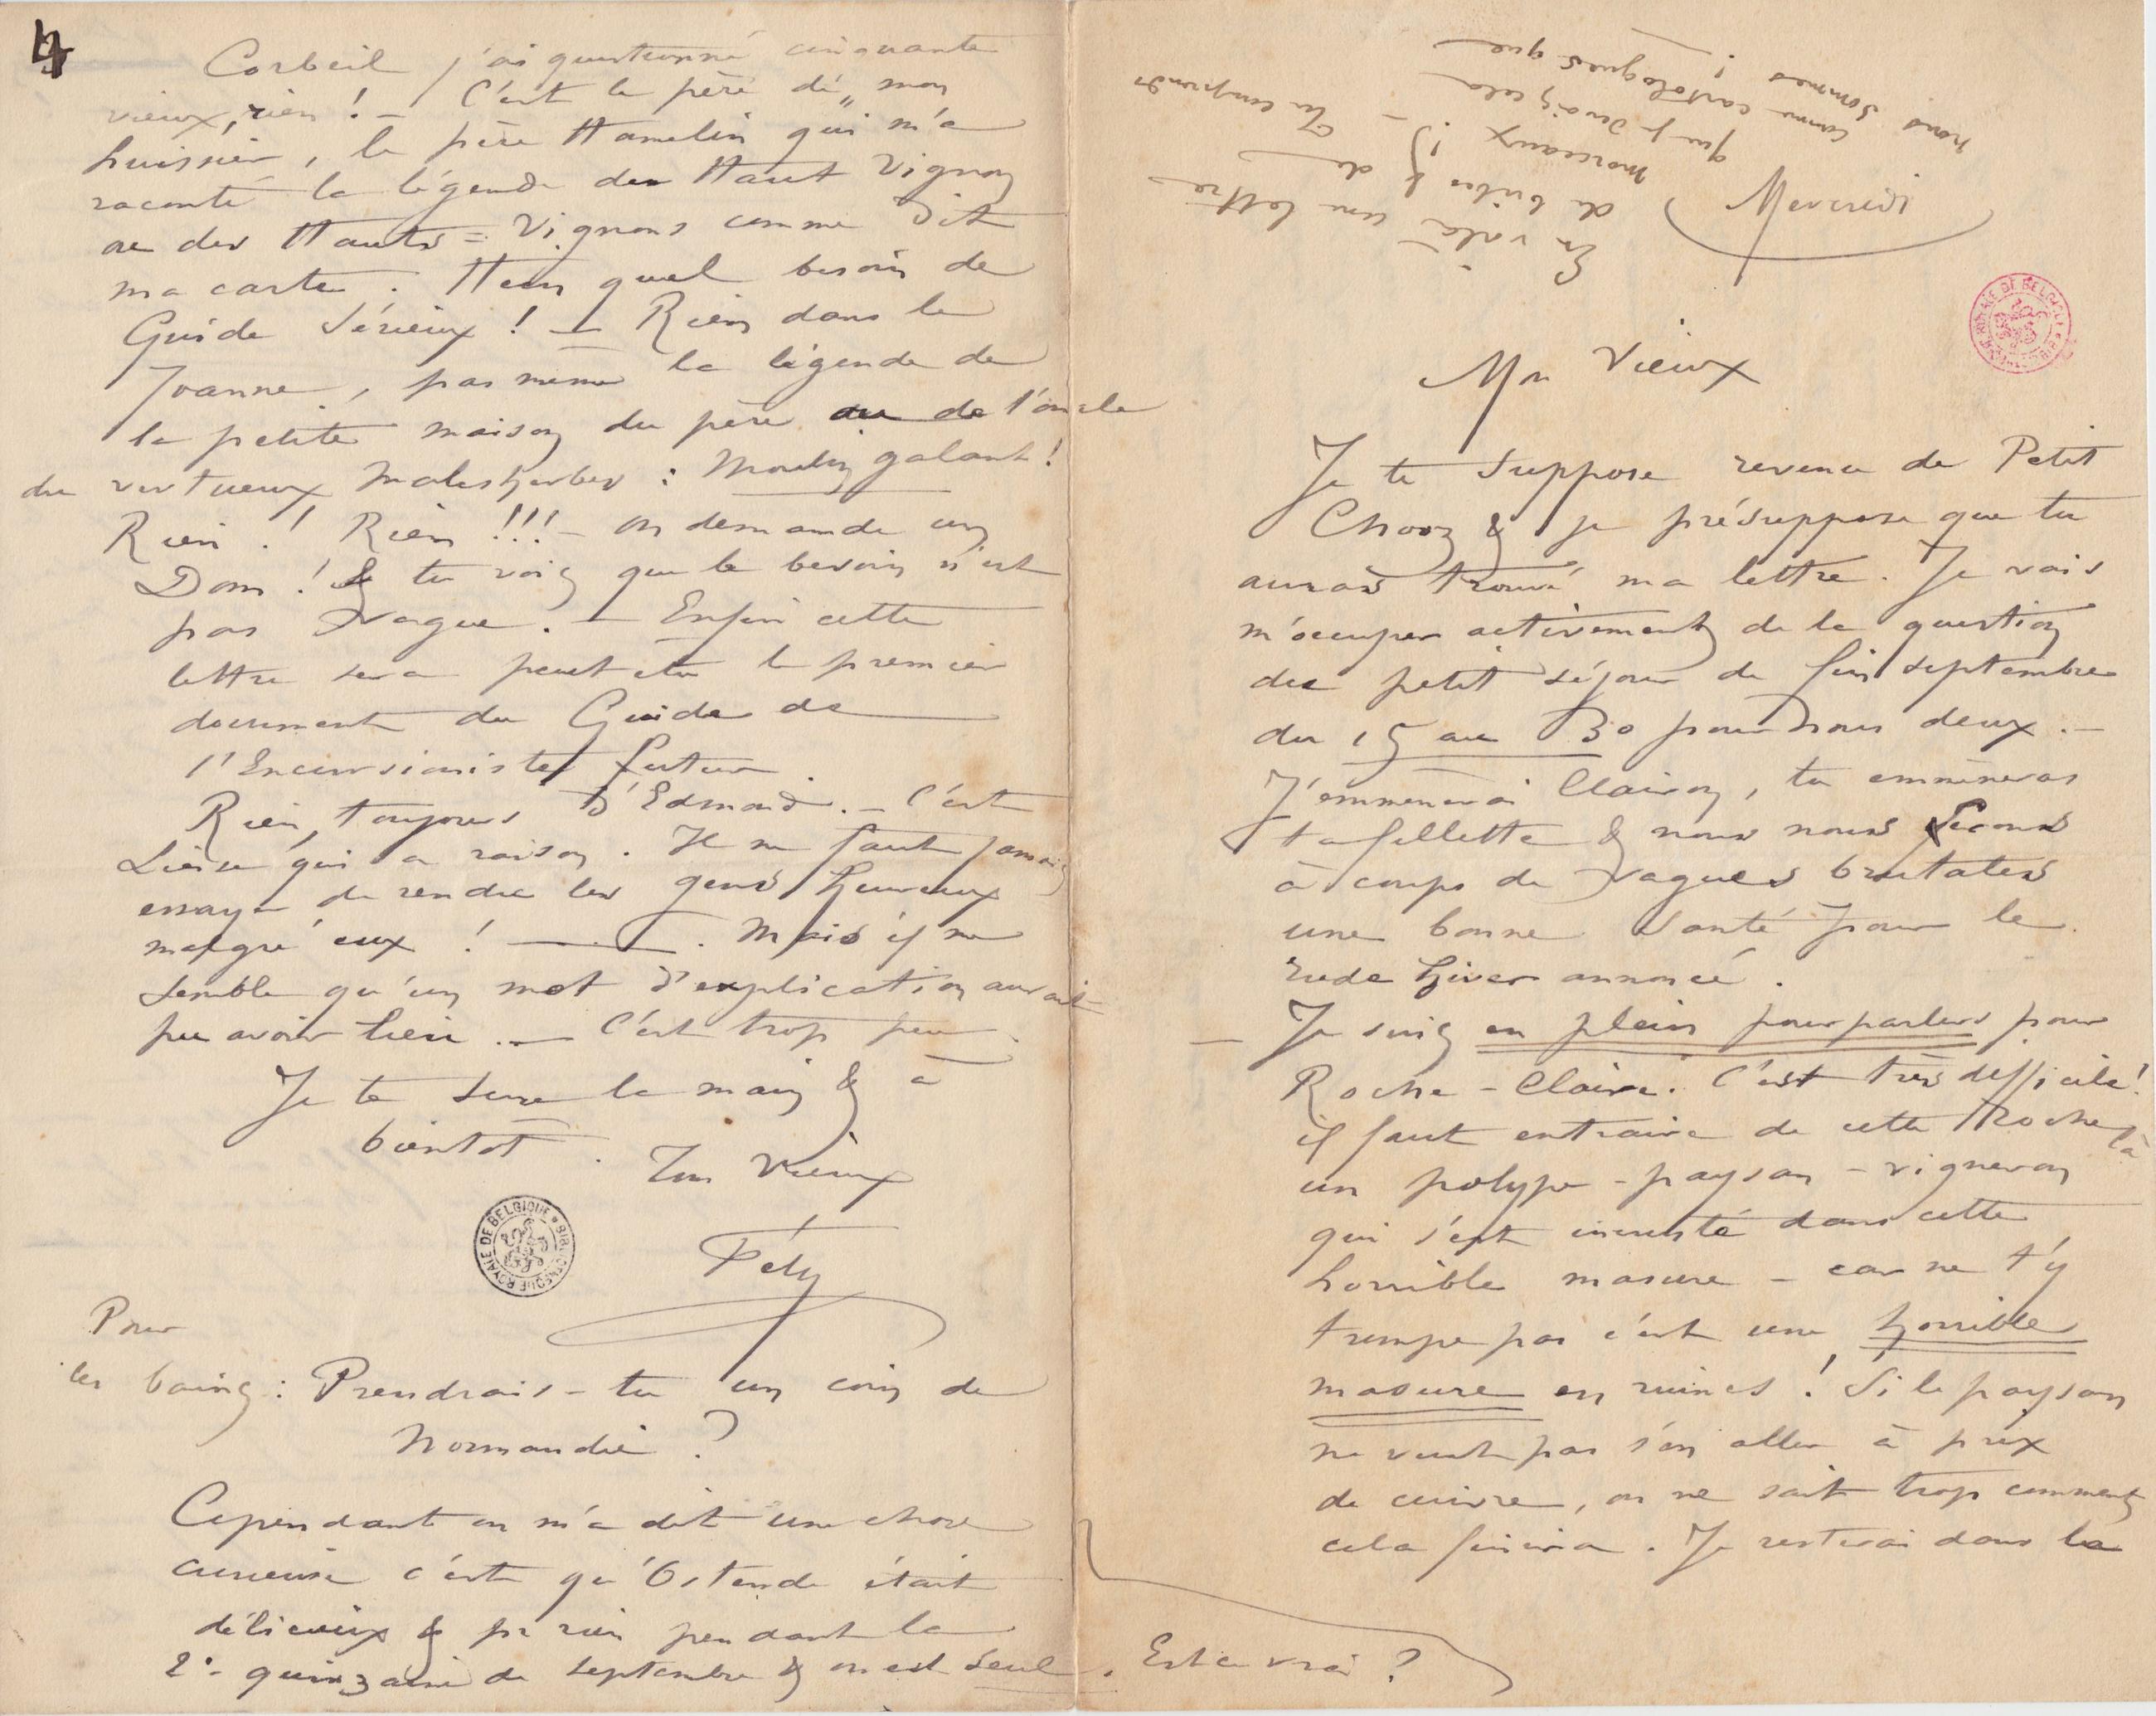 Mercredi
En voilà une lettre
de bribes & de
morceaux !) – Tu comprends
que je devais cela
comme cartologues que
nous sommes !
Mon Vieux
Je te suppose revenu de Petit
Chooz & je présuppose que tu
auras trouvé ma lettre. Je vais
m'occuper activement de la question
du petit séjour de fin septembre
du 15 au 30 pour nous deux. –
J'emmènerai Clairon, tu emmèneras
ta fillette & nous nous ferons
à coups de vagues brutales
une bonne santé pour le
rude hiver annoncé.
– Je suis en plein pourparlers pour
Roche-Claire. C'est très difficile !
il faut entraire de cette Roche là
un polype-paysan-vigneron
qui s'est incrusté dans cette
horrible masure – car ne t'y
trompe pas c'est une horrible
masure en ruines ! Si le paysan
ne veut pas s'en aller à prix
de cuivre, on ne sait trop comment
cela finira. Je resterai dans la
4
Corbeil j'ai questionné cinquante
vieux, rien ! – C'est le père de „ mon
huissier, le père Hamelin qui m'a
raconté la légende des Haut Vignon
ou des Hauts=Vignons comme dit
ma carte. Hein quel besoin de
Guide Sérieux ! – Rien dans le
Joanne, pas même la légende de
la petite maison du père ou de l'oncle
du vertueux Malesherbes : Moulin galant !
Rien ! Rien !!! – on demande un
Dom ! & tu vois que le besoin n'est
pas vague. – Enfin cette
lettre sera peut être le premier
document du Guide de
l'Excursioniste futur.
Rien, toujours d'Edmond. – C'est
Liesse qui a raison. Il ne faut jamais
essayer de rendre les gens heureux
malgré eux ! – . Mais il me
semble qu'un mot d'explication aurait
pu avoir lieu. – C'est trop peu
Je te serre la main & à
bientôt. Ton Vieux
Fély
Pour
les bains : Prendrais-tu un coin de
Normandie ?
Cependant on m'a dit une chose
curieuse c'est qu'Ostende était
délicieux & pr rien pendant la
2e quinzaine de septembre & on est seul. Est ce vrai ?
BIBLIOTHEQUE ROYALE DE BELGIQUE